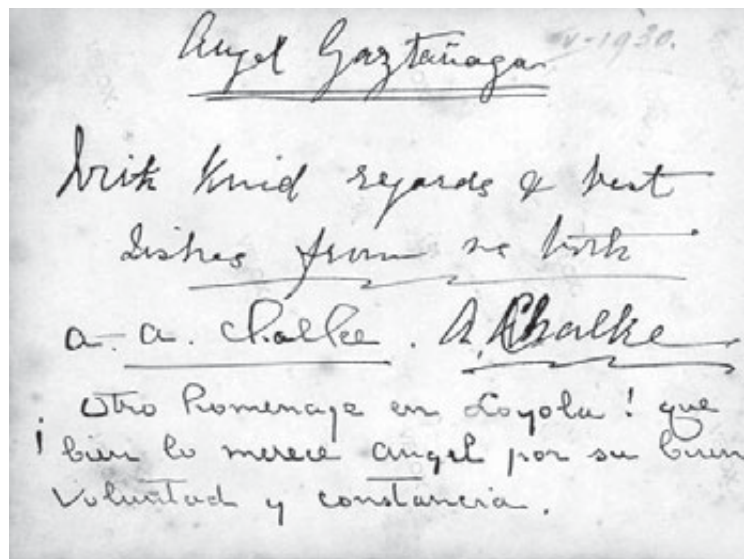 Angel Gaztañaga
V-1930.
With Kind regards & best
Wishes from us both
a. a. Chalke. A. A. Chalke
Otro homenaje en Loyola! que
¡ bien lo merece angel por su buen
voluntad y constancia.